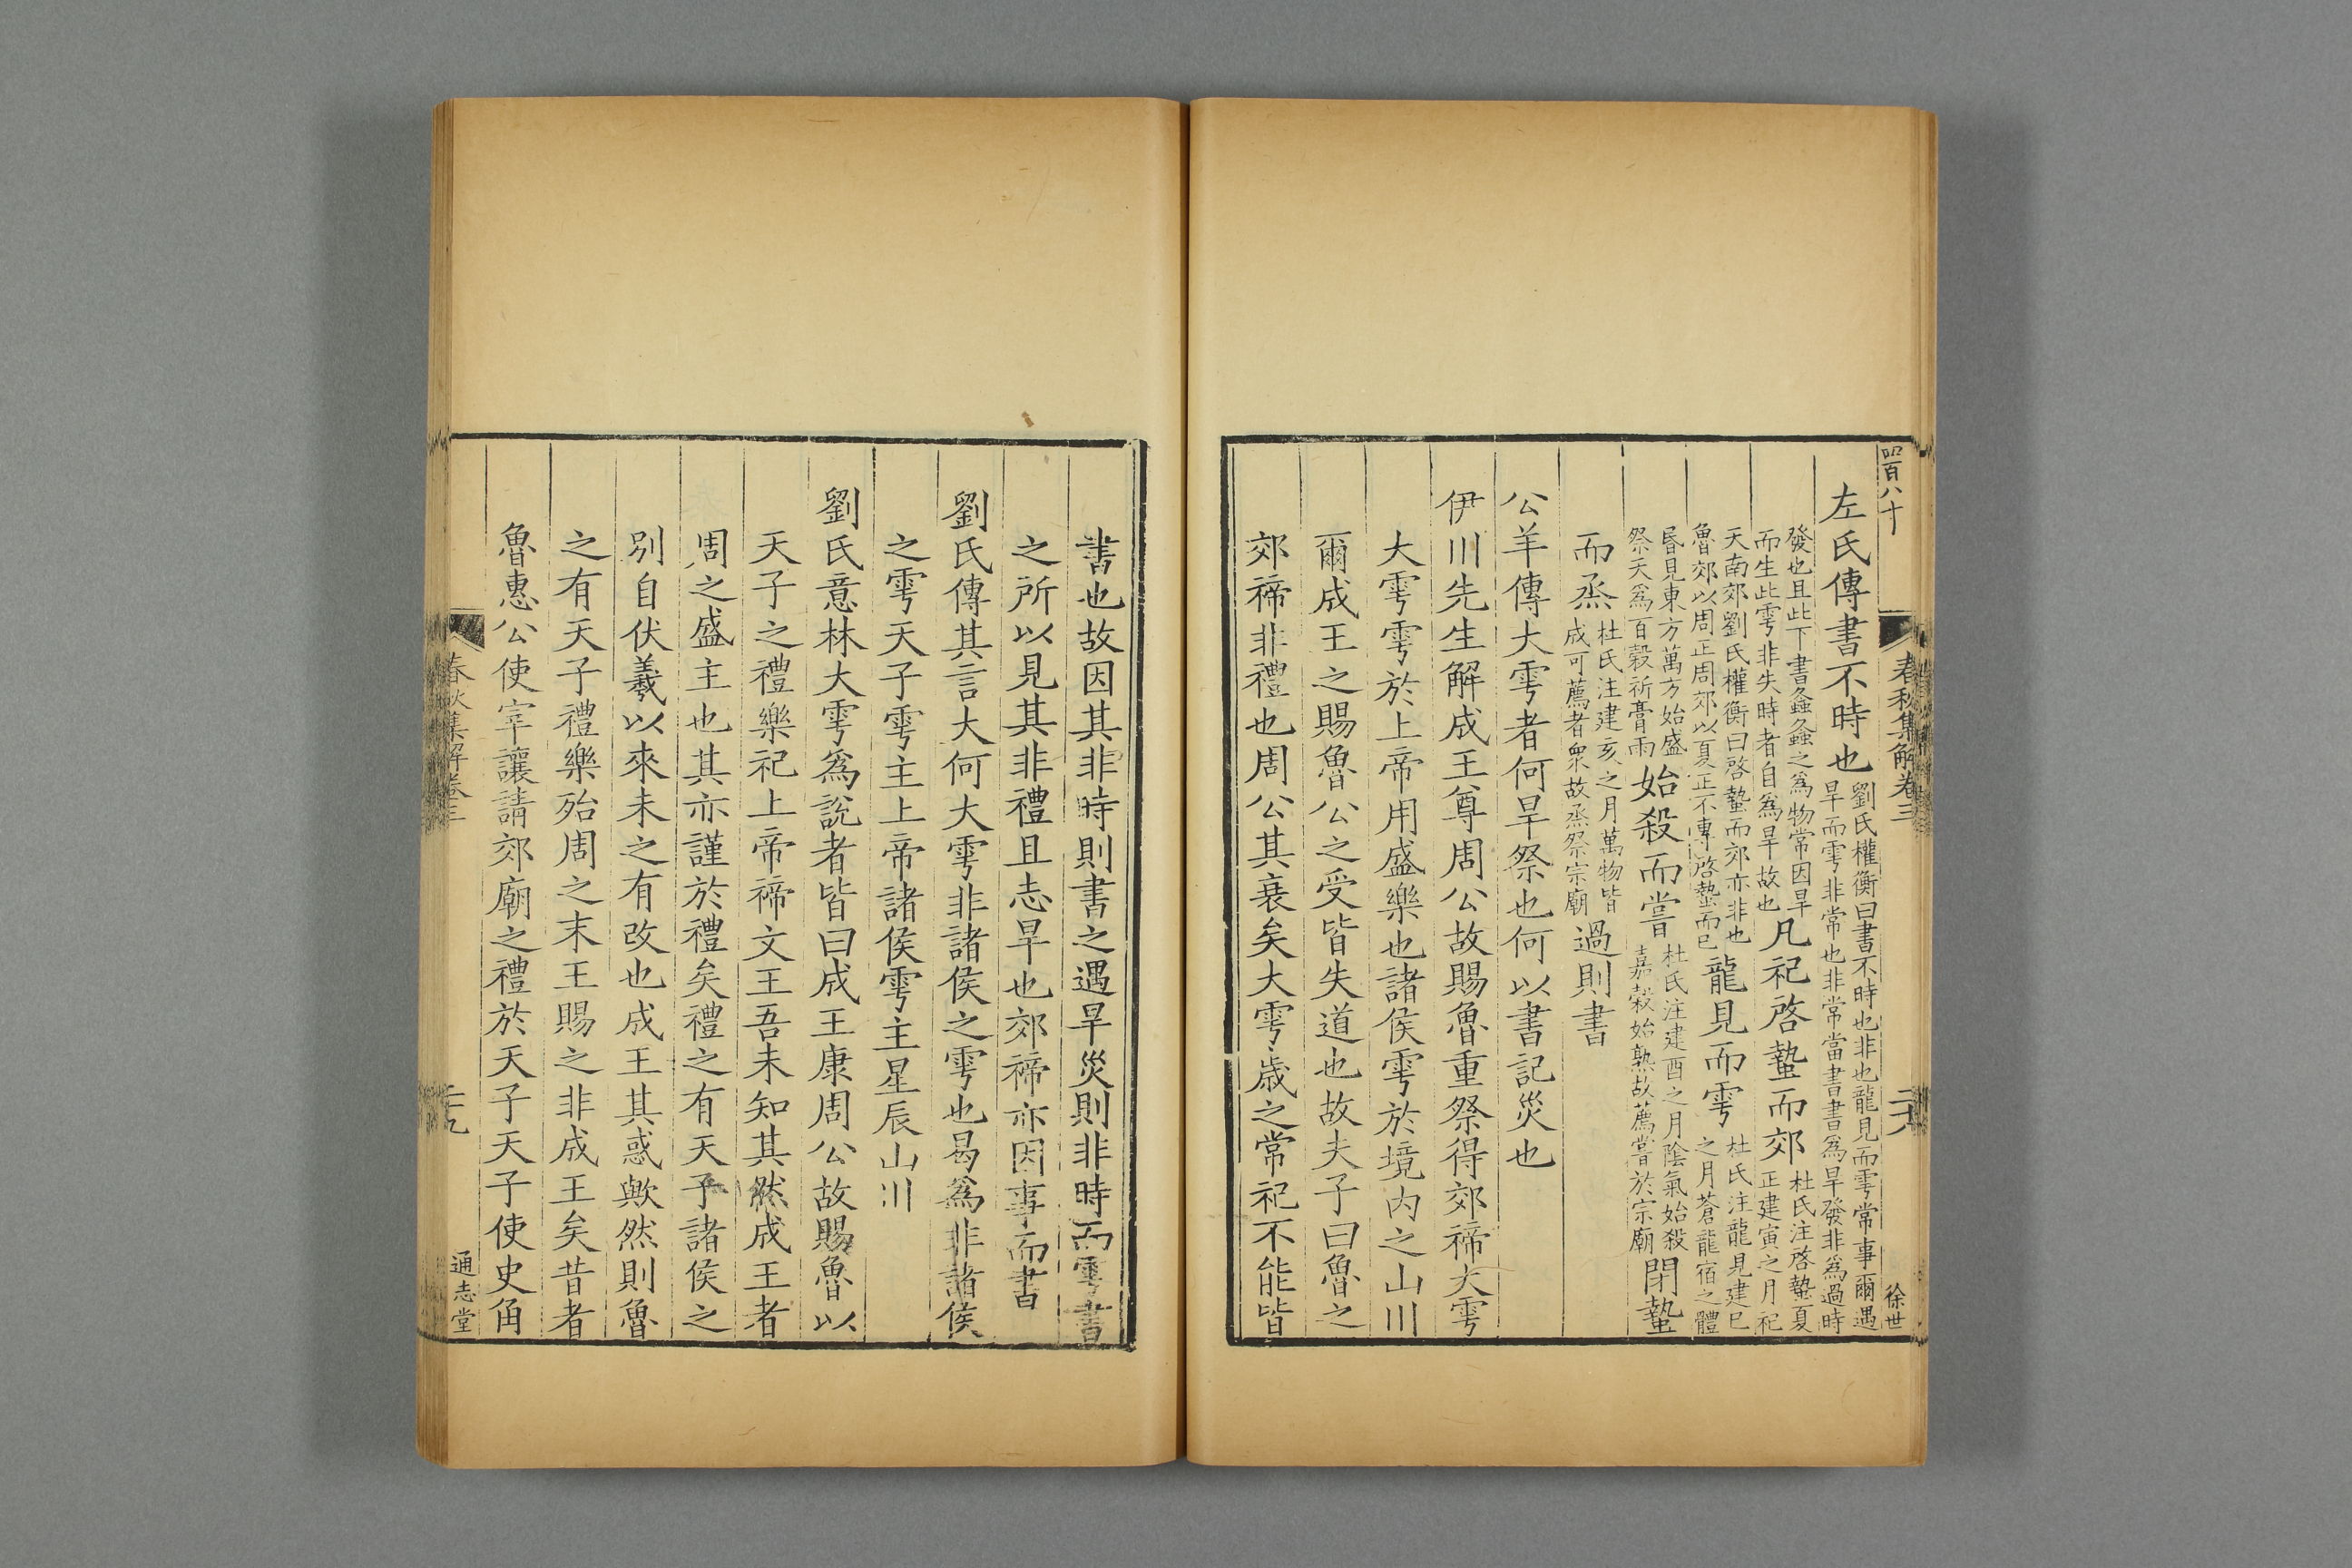 四百八十
春秋集解卷三
二十八
徐世
左氏傳書不時也劉氏權衡曰書不時也非也龍見而雩常事爾遇
旱而雩非常也非常當書書為旱發非為過時
發也且此下書螽螽之為物常因旱
而生此雩非失時者自為旱故也凡祀啓蟄而郊杜氏注啓蟄夏
正建寅之月祀
天南郊劉氏權衡曰啓蟄而郊亦非也
魯郊以周正周郊以夏正不專啓蟄而已龍見而雩杜氏注龍見建巳
之月蒼龍宿之體
昏見東方萬方始盛
祭天為百穀祈膏雨始殺而嘗杜氏注建酉之月陰氣始殺
嘉穀始熟故薦嘗於宗廟閉蟄
而烝杜氏注建亥之月萬物皆
成可薦者衆故烝祭宗廟過則書
公羊傳大雩者何旱祭也何以書記災也
伊川先生解成王尊周公故賜魯重祭得郊禘大雩
大雩雩於上帝用盛樂也諸侯雩於境内之山川
爾成王之賜魯公之受皆失道也故夫子曰魯之
郊禘非禮也周公其衰矣大雩歲之常祀不能皆
書也故因其非時則書之遇旱災則非時而雩書
之所以見其非禮且志旱也郊禘亦因事而書
劉氏傳其言大何大雩非諸侯之雩也曷為非諸侯
之雩天子雩主上帝諸侯雩主星辰山川
劉氏意林大雩為說者皆曰成王康周公故賜魯以
天子之禮樂祀上帝禘文王吾未知其然成王者
周之盛主也其亦謹於禮矣禮之有天子諸侯之
別自伏羲以來未之有改也成王其惑歟然則魯
之有天子禮樂殆周之末王賜之非成王矣昔者
魯惠公使宰讓請郊廟之禮於天子天子使史角
春秋集解卷三
二十九
通志堂